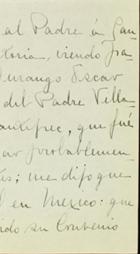 al Padre á Gua-
toria, viendo Fra
Durango Oscar
del Padre Villa-
antifrec, que fué
av probablemen-
ts; me dijo que
l en México: que
ndo su Convenio